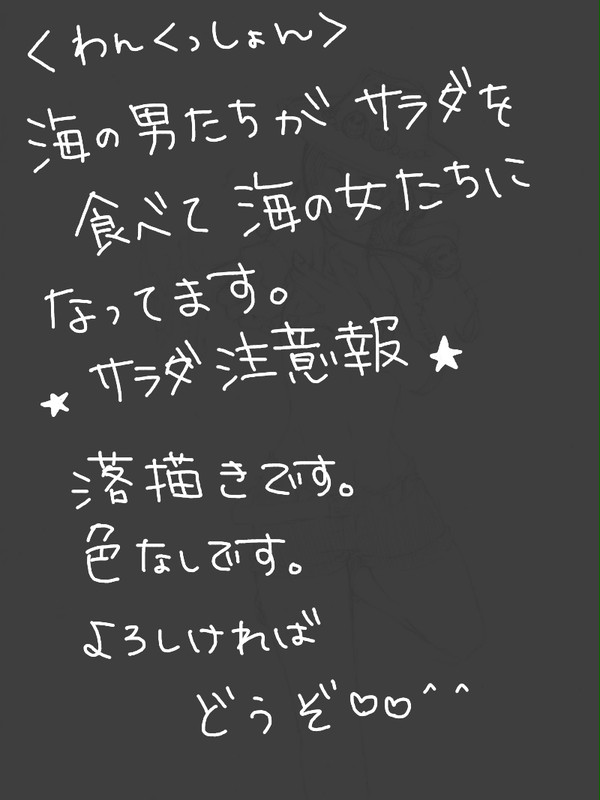 〈わんくっしょん〉
海の男たちが サラダを
食べて 海の女たちに
なってます。
★ サラダ注意報 ★
落描きです。
色なしです。
よろしければ
どうぞ♡♡^^